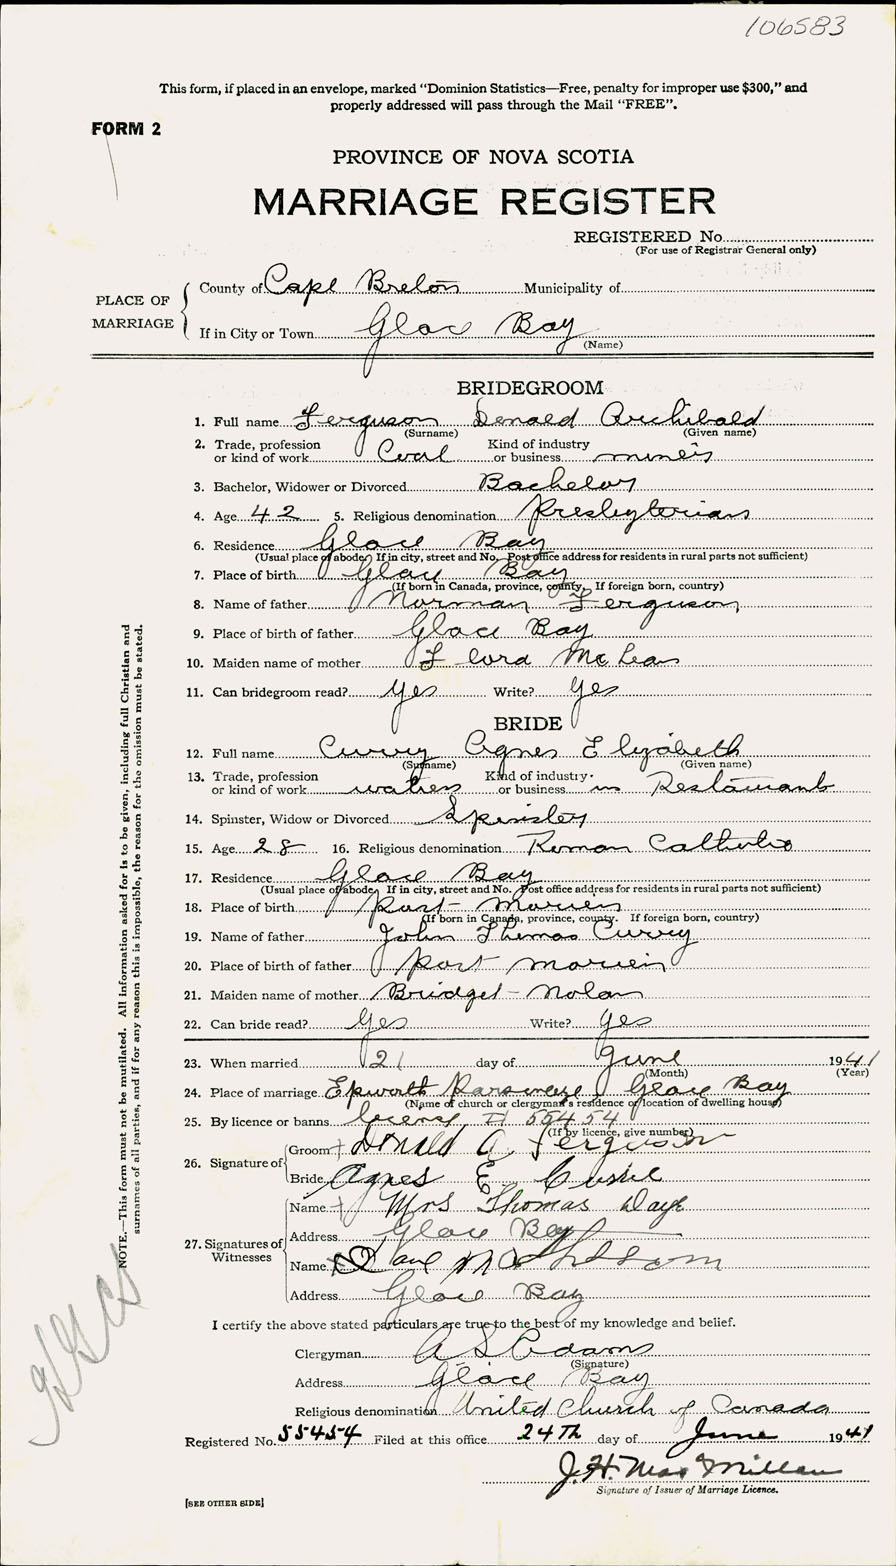 106583
This form, if placed in an envelope, marked "Dominion Statistics—Free, penalty for improper use $300," and
properly addressed will pass through the Mail "FREE".
FORM 2
PROVINCE OF NOVA SCOTIA
MARRIAGE REGISTER
REGISTERED No.
(For use of Registrar General only)
PLACE OF MARRIAGE
County of Cape Breton Municipality of
If in City or Town Glace Bay
(Name)
BRIDEGROOM
1. Full name Ferguson Donald Archibald
(Surname) (Given name)
2. Trade, profession or kind of work Coal Kind of industry or business
3. Bachelor, Widower or Divorced Bachelor
4. Age 42 5. Religious denomination Presbyterian
6. Residence Glace Bay
(Usual place of abode. If in city, street and No. Post office address for residents in rural parts not sufficient)
7. Place of birth Glace Bay
(If born in Canada, province, county. If foreign born, country)
8. Name of father Norman Ferguson
9. Place of birth of father Glace Bay
10. Maiden name of mother McLean
11. Can bridegroom read? yes Write? yes
BRIDE
12. Full name Curry Agnes Elizabeth
(Surname) (Given name)
13. Trade, profession or kind of work Kind of industry or business in Restaurant
14. Spinster, Widow or Divorced
15. Age 28 16. Religious denomination Roman Catholic
17. Residence Glace Bay
(Usual place of abode. If in city, street and No. Post office address for residents in rural parts not sufficient)
18. Place of birth Port Morien
(If born in Canada, province, county. If foreign born, country)
19. Name of father John Thomas Curry
20. Place of birth of father Port Morien
21. Maiden name of mother Bridget Nolan
22. Can bride read? yes Write? yes
23. When married 21 day of June 1941
(Month) (Year)
24. Place of marriage Epworth Glace Bay
(Name of church or clergyman's residence or location of dwelling house)
25. By licence or banns 55454
(If by licence, give number)
26. Signature of
Groom Donald A. Ferguson
Bride Agnes E.
27. Signatures of Witnesses
Name Mrs Thomas Daye
Address Glace Bay
Name
Address Glace Bay
I certify the above stated particulars are true to the best of my knowledge and belief.
Clergyman A S Adams
(Signature)
Address Glace Bay
Religious denomination United Church of Canada
Registered No. 55454 Filed at this office 24Th day of June 1941
J. H. MacMillan
Signature of Issuer of Marriage Licence.
[SEE OTHER SIDE]
NOTE.—This form must not be mutilated. All information asked for is to be given, including full Christian and
surnames of all parties, and if for any reason this is impossible, the reason for the omission must be stated.